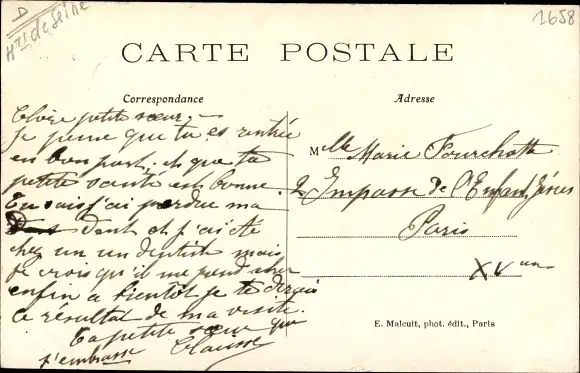 D
Hts de Seine
1658
CARTE POSTALE
Correspondance
Adresse
Chère petite sœur.
Je pense que tu es rentrée
en bon port, et que ta
petite santé est bonne.
Tu sais j'ai perdue ma
dent et j'ai été
chez un un dentiste mais
je crois qu'il me prend cher
enfin a bientôt je te dirais
le résultat de ma visite.
Ta petite sœur qui
t'embrasse
Mlle Marie Fourchotte
2 Impasse de l'Enfant Jésus
Paris
XV
E. Malcuit, phot. édit., Paris